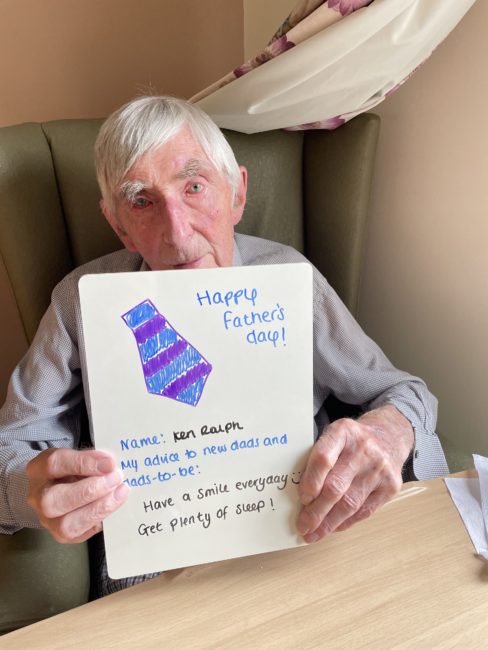 Happy
Father's
day!
Name: Ken Ralph
My advice to new dads and
dads-to-be:
Have a smile everyday :)
Get plenty of sleep!